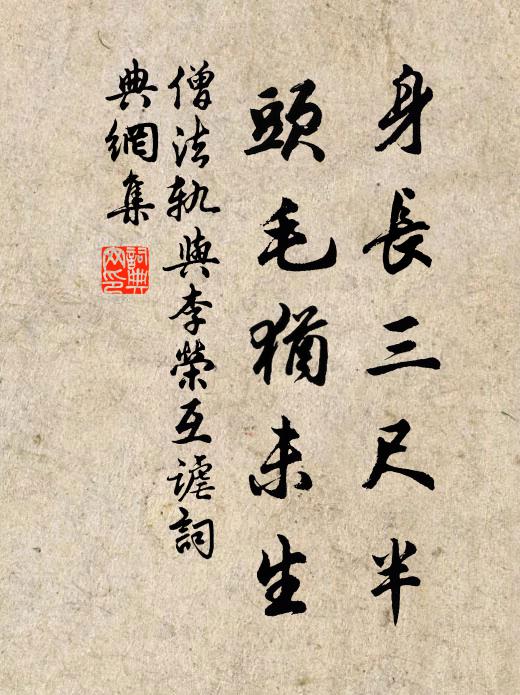 身長三尺半
頭毛猶未生
僧法軌與李榮互謔詞
典網集
詞典
網印